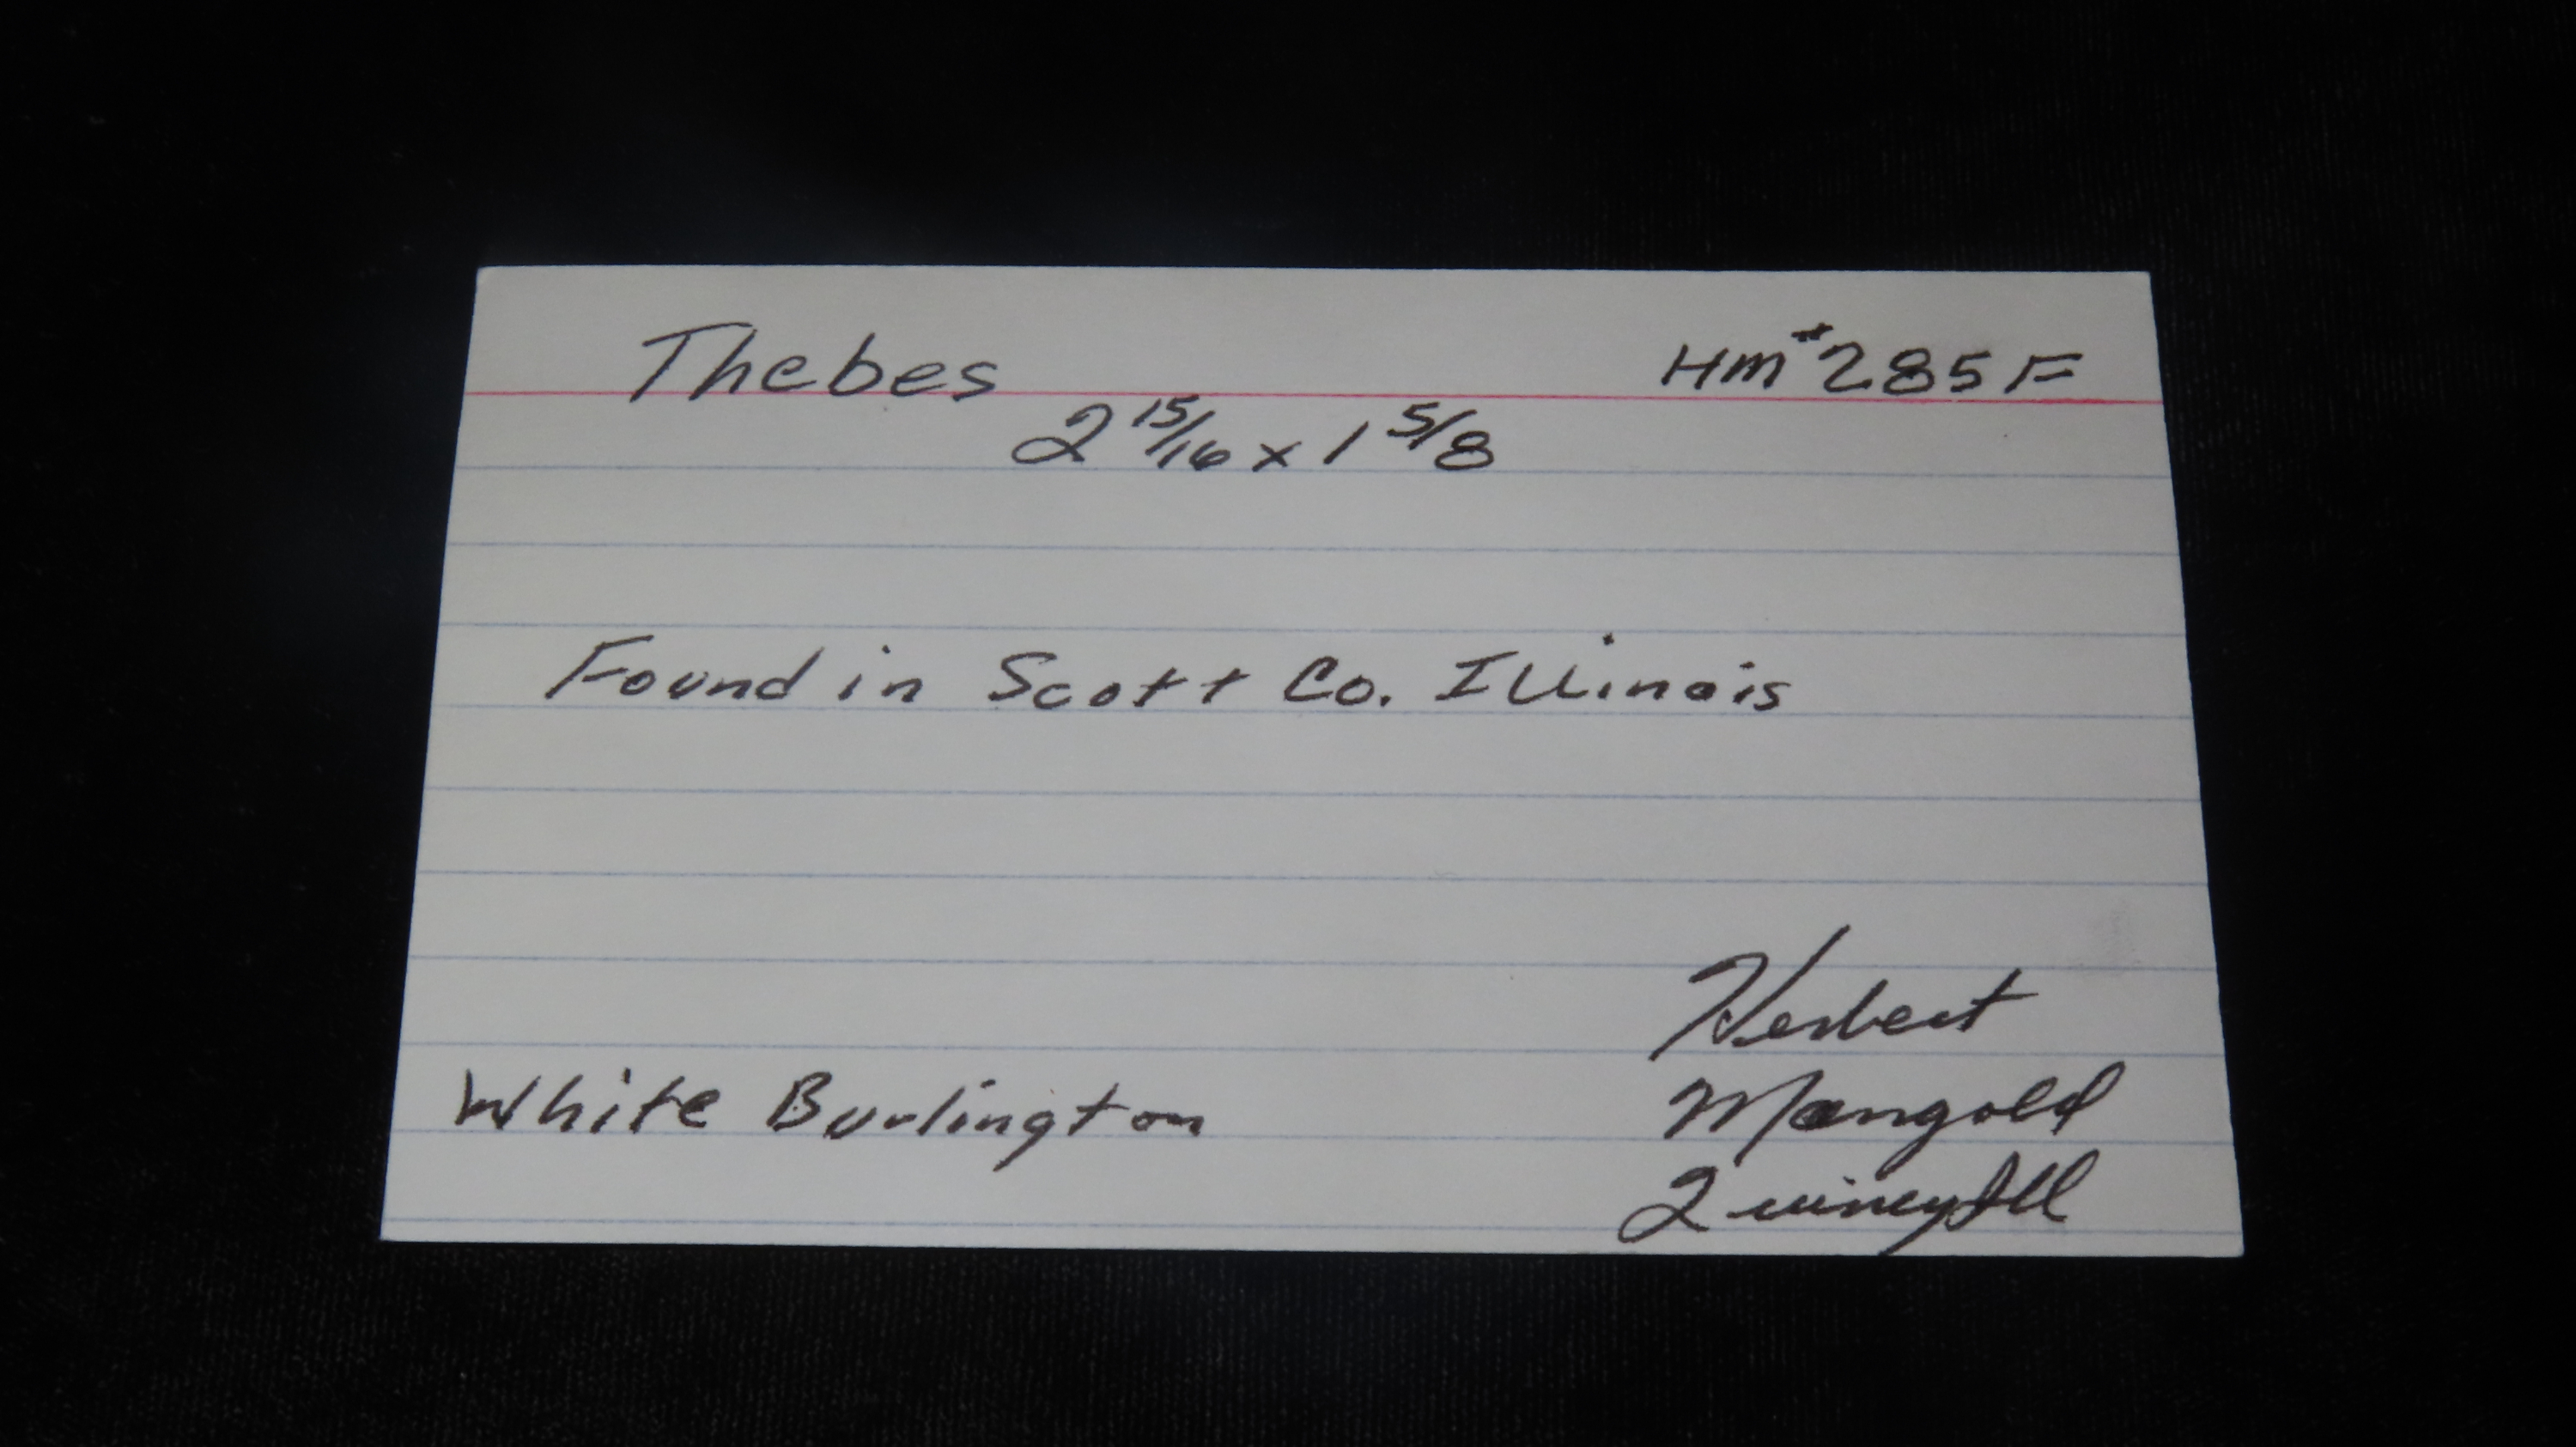 Thebes Hm#285F
2 15/16 x 1 5/8
Found in Scott Co. Illinois
Herbert
White Burlington Mangold
Quincy Ill